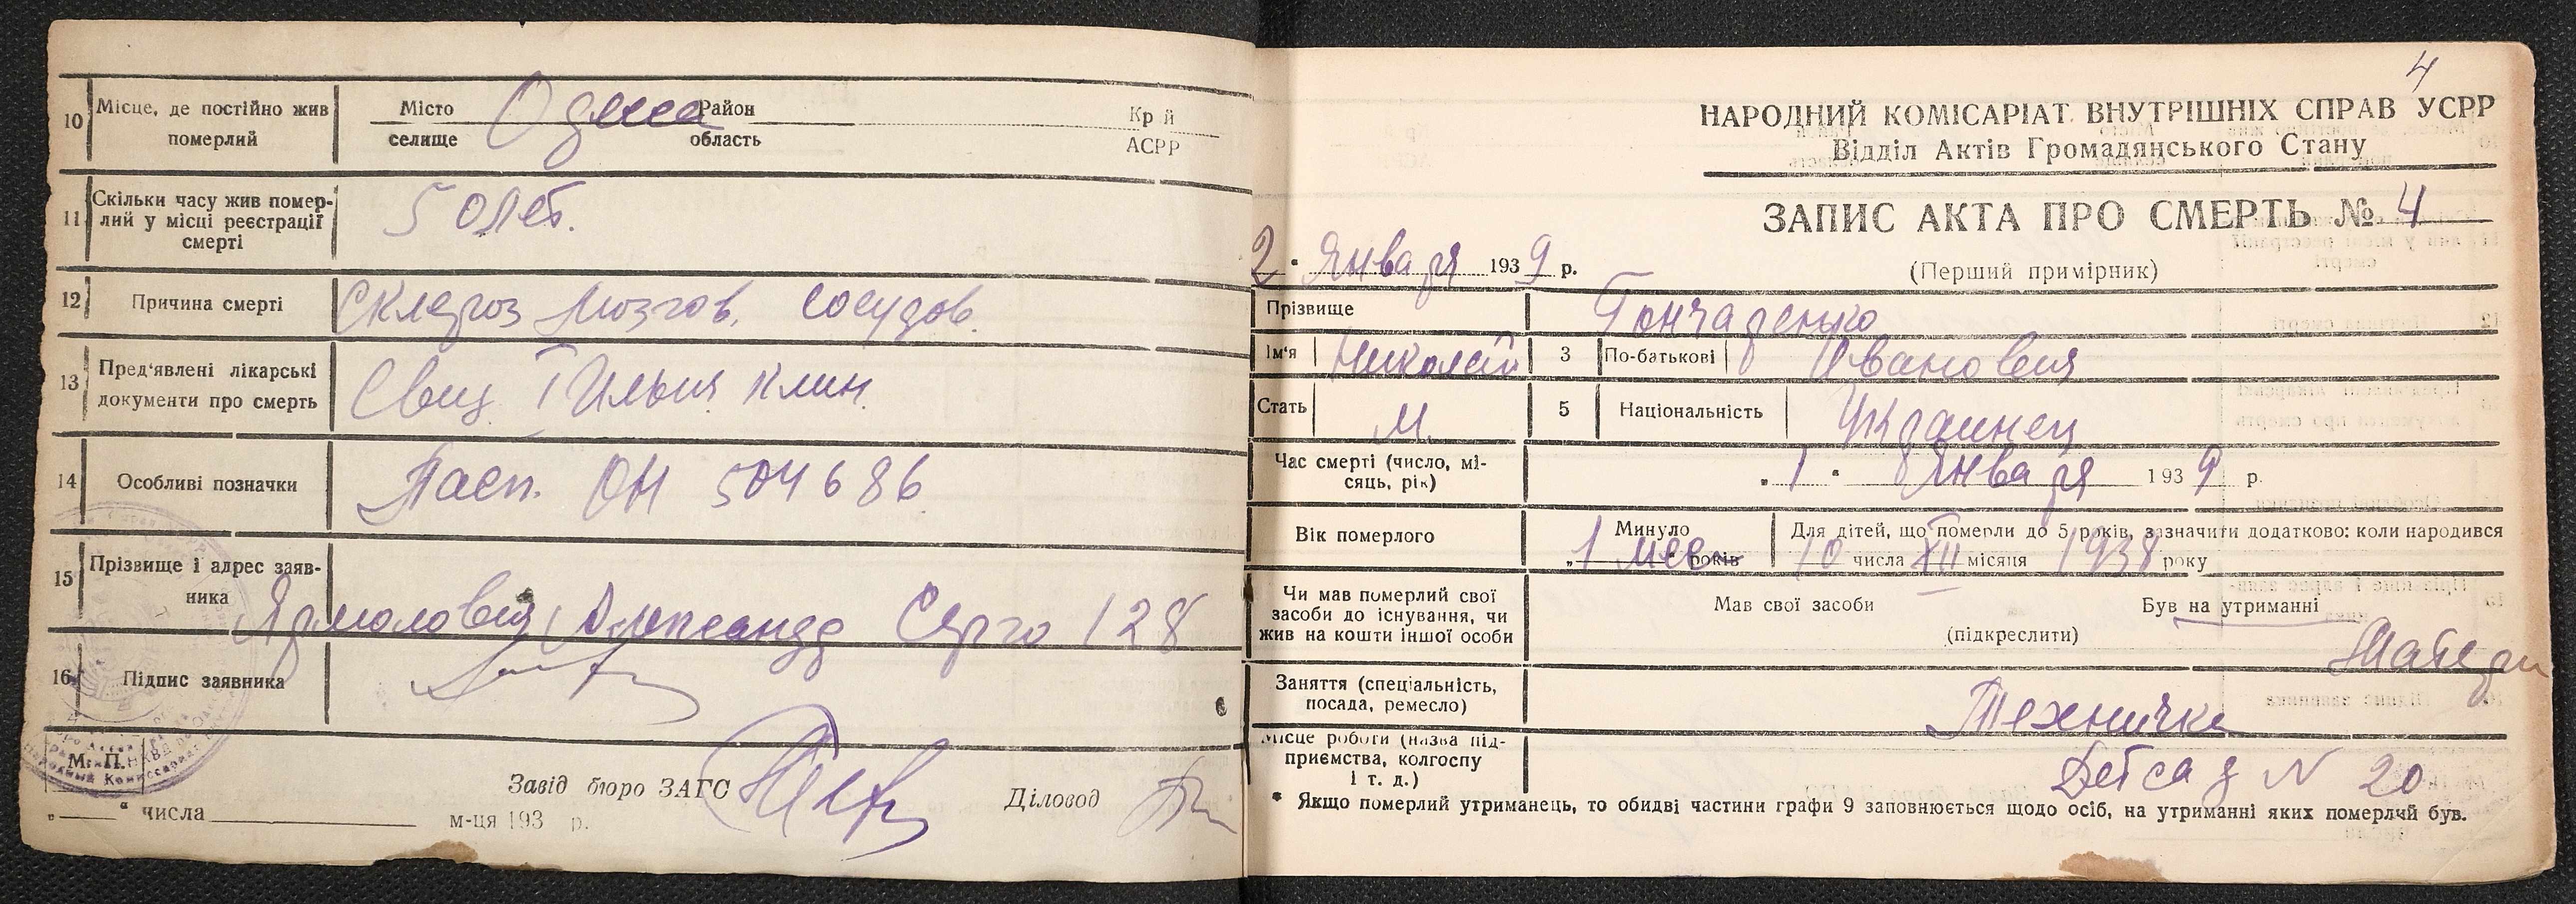 10 Місце, де постійно жив померлий
Місто селище Одесса Район область Край АСРР
11 Скільки часу жив померлий у місці реєстрації смерті
50 лет.
12 Причина смерті
Склероз мозгов. сосудов.
13 Пред'явлені лікарські документи про смерть
Свид. I Ильич. клин.
14 Особливі позначки
Пасп. ОН 504686
15 Прізвище і адрес заявника
Ярмолович Александр Серго 128
16 Підпис заявника
М. П.
Завід бюро ЗАГС
Діловод
„ “ числа м-ця 193 р.
4
НАРОДНИЙ КОМІСАРІАТ ВНУТРІШНІХ СПРАВ УСРР
Відділ Актів Громадянського Стану
ЗАПИС АКТА ПРО СМЕРТЬ № 4
2 " Января 1939 р.
(Перший примірник)
Прізвище Гончаренко
Ім'я Николай 3 По-батькові Иванович
Стать М. 5 Національність Украинец
Час смерті (число, місяць, рік) „ 1 " Января 1939 р.
Вік померлого
Минуло „ 1 мес років
Для дітей, що померли до 5 років, зазначити додатково: коли народився
10 числа XII місяця 1938 року
Чи мав померлий свої засоби до існування, чи жив на кошти іншої особи
Мав свої засоби Був на утриманні
(підкреслити)
Матери
Заняття (спеціальність, посада, ремесло)
Техничка
Місце роботи (назва підприємства, колгоспу і т. д.)
Детсад N 20
* Якщо померлий утриманець, то обидві частини графи 9 заповнюється щодо осіб, на утриманні яких померлий був.